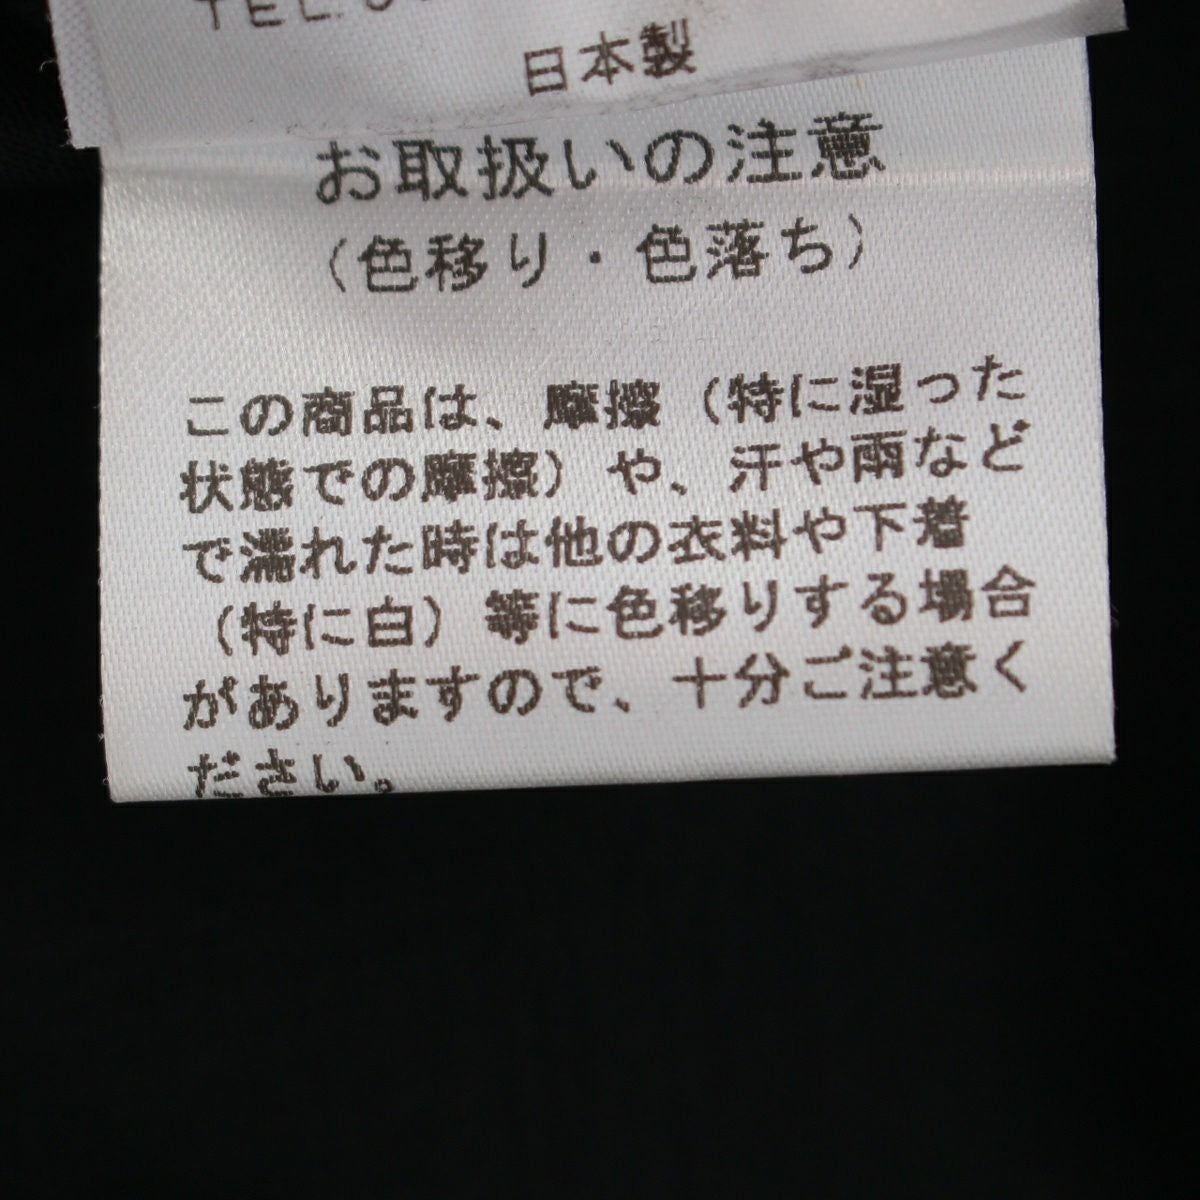 TEL.
日本製
お取扱いの注意
（色移り・色落ち）
この商品は、摩擦（特に湿った
状態での摩擦）や、汗や雨など
で濡れた時は他の衣料や下着
（特に白）等に色移りする場合
がありますので、十分ご注意く
ださい。